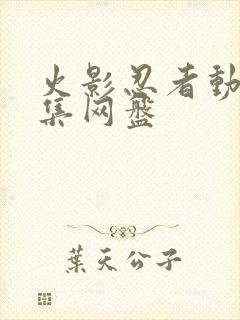 火影忍者動
集网盤
葉天公子